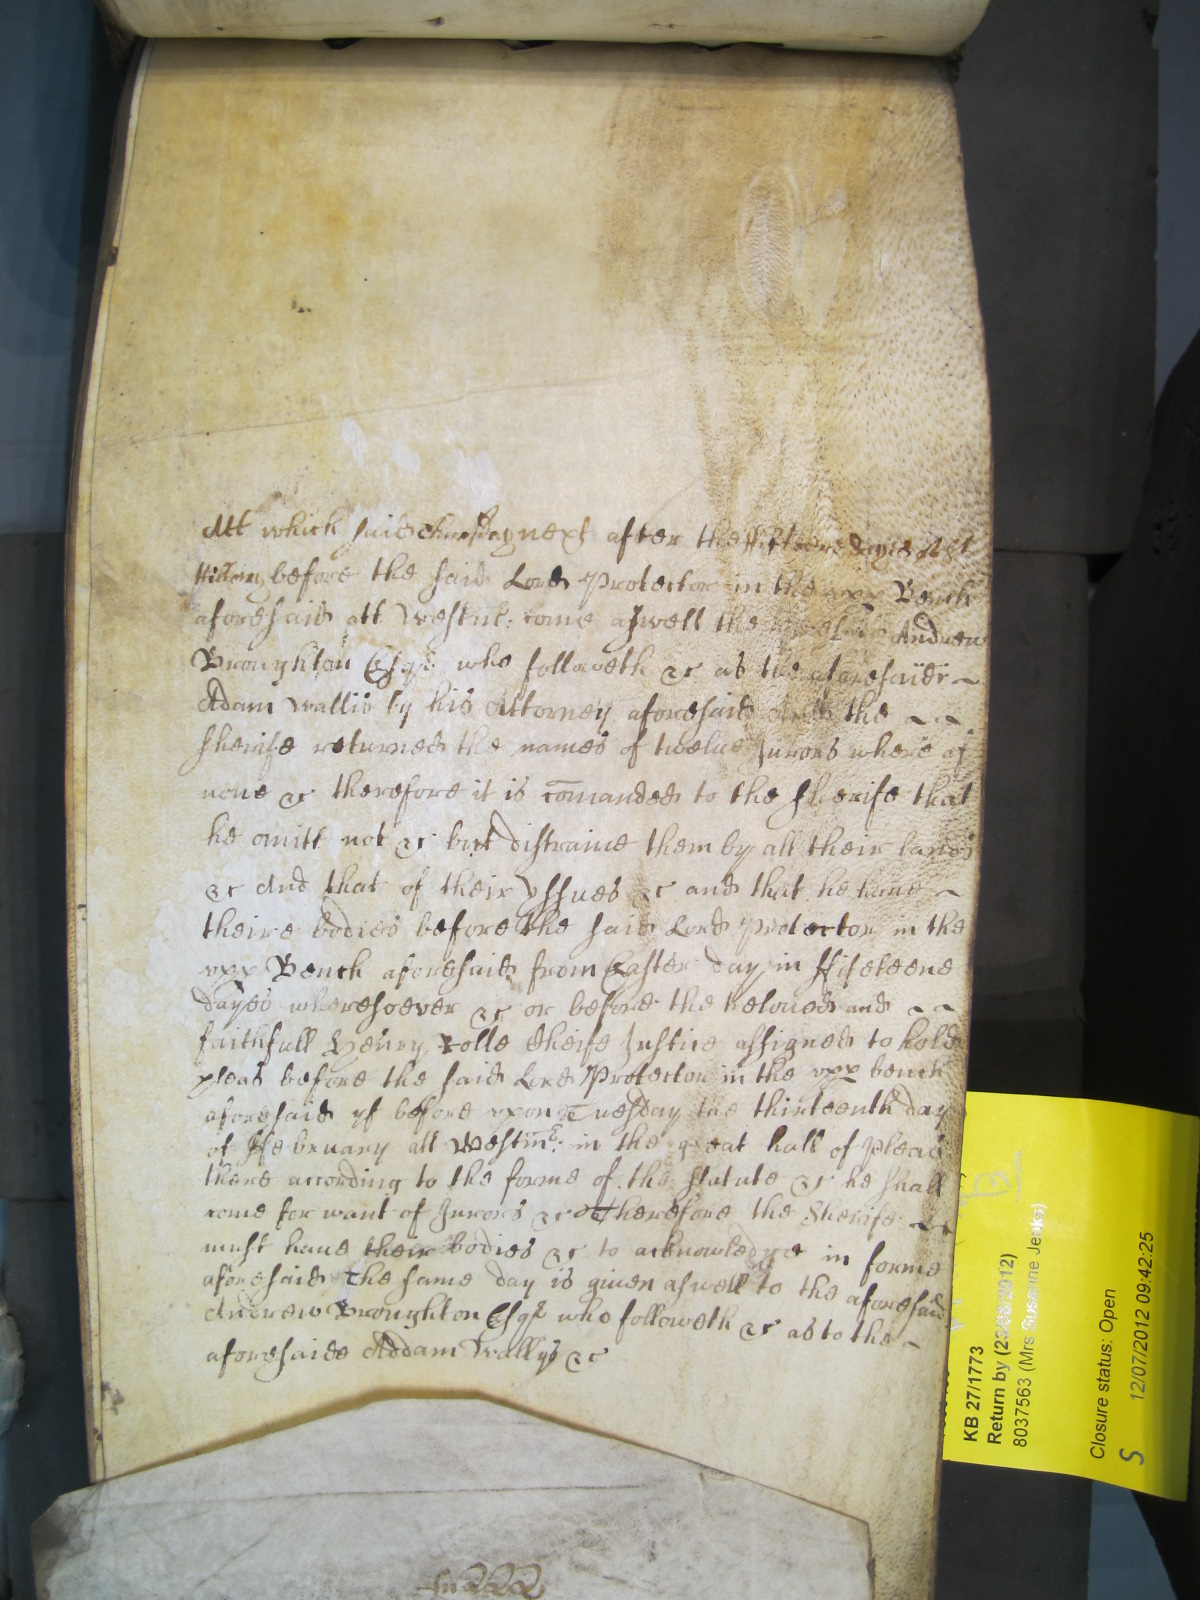 Att which said Thursday next after the fifteene dayes of St
Hillary before the said Lord Protector in the vpp Bench
aforesaid att Westm: come aswell the aforesaid Andrew
Broughton Esqr who followeth &c as the aforesaid
Adam Wallis by his Attorney aforesaid And the
Sherife returned the names of twelue Jurors where of
none &c therefore it is comanded to the sherife that
he omitt not &c but distraine them by all their lands
&c And that of their yssues &c and that he haue
theire bodies before the said Lord Protector in the
vpp Bench aforesaid from Easter day in fifeteene
dayes wheresoever &c or before the beloued and
faithfull Henry Rolle Cheife Justice assigned to hold
pleas before the said Lord Protector in the vpp bench
aforesaid yf before vpon Tuesday the thirteenth day
of ffebruary att Westmr: in the great hall of pleas
there according to the forme of the statute &c he shall
come for want of Jurors &c Therefore the Sherife
must haue their bodies &c to acknowledge in forme
aforesaid the same day is given aswell to the aforesaid
Andrew Broughton Esqr who followeth &c as to the
aforesaide Addam Wallys &c
KB 27/1773
Return by (23/08/2012)
8037563 (Mrs Susanne Jenks)
Closure status: Open
S 12/07/2012 09:42:25